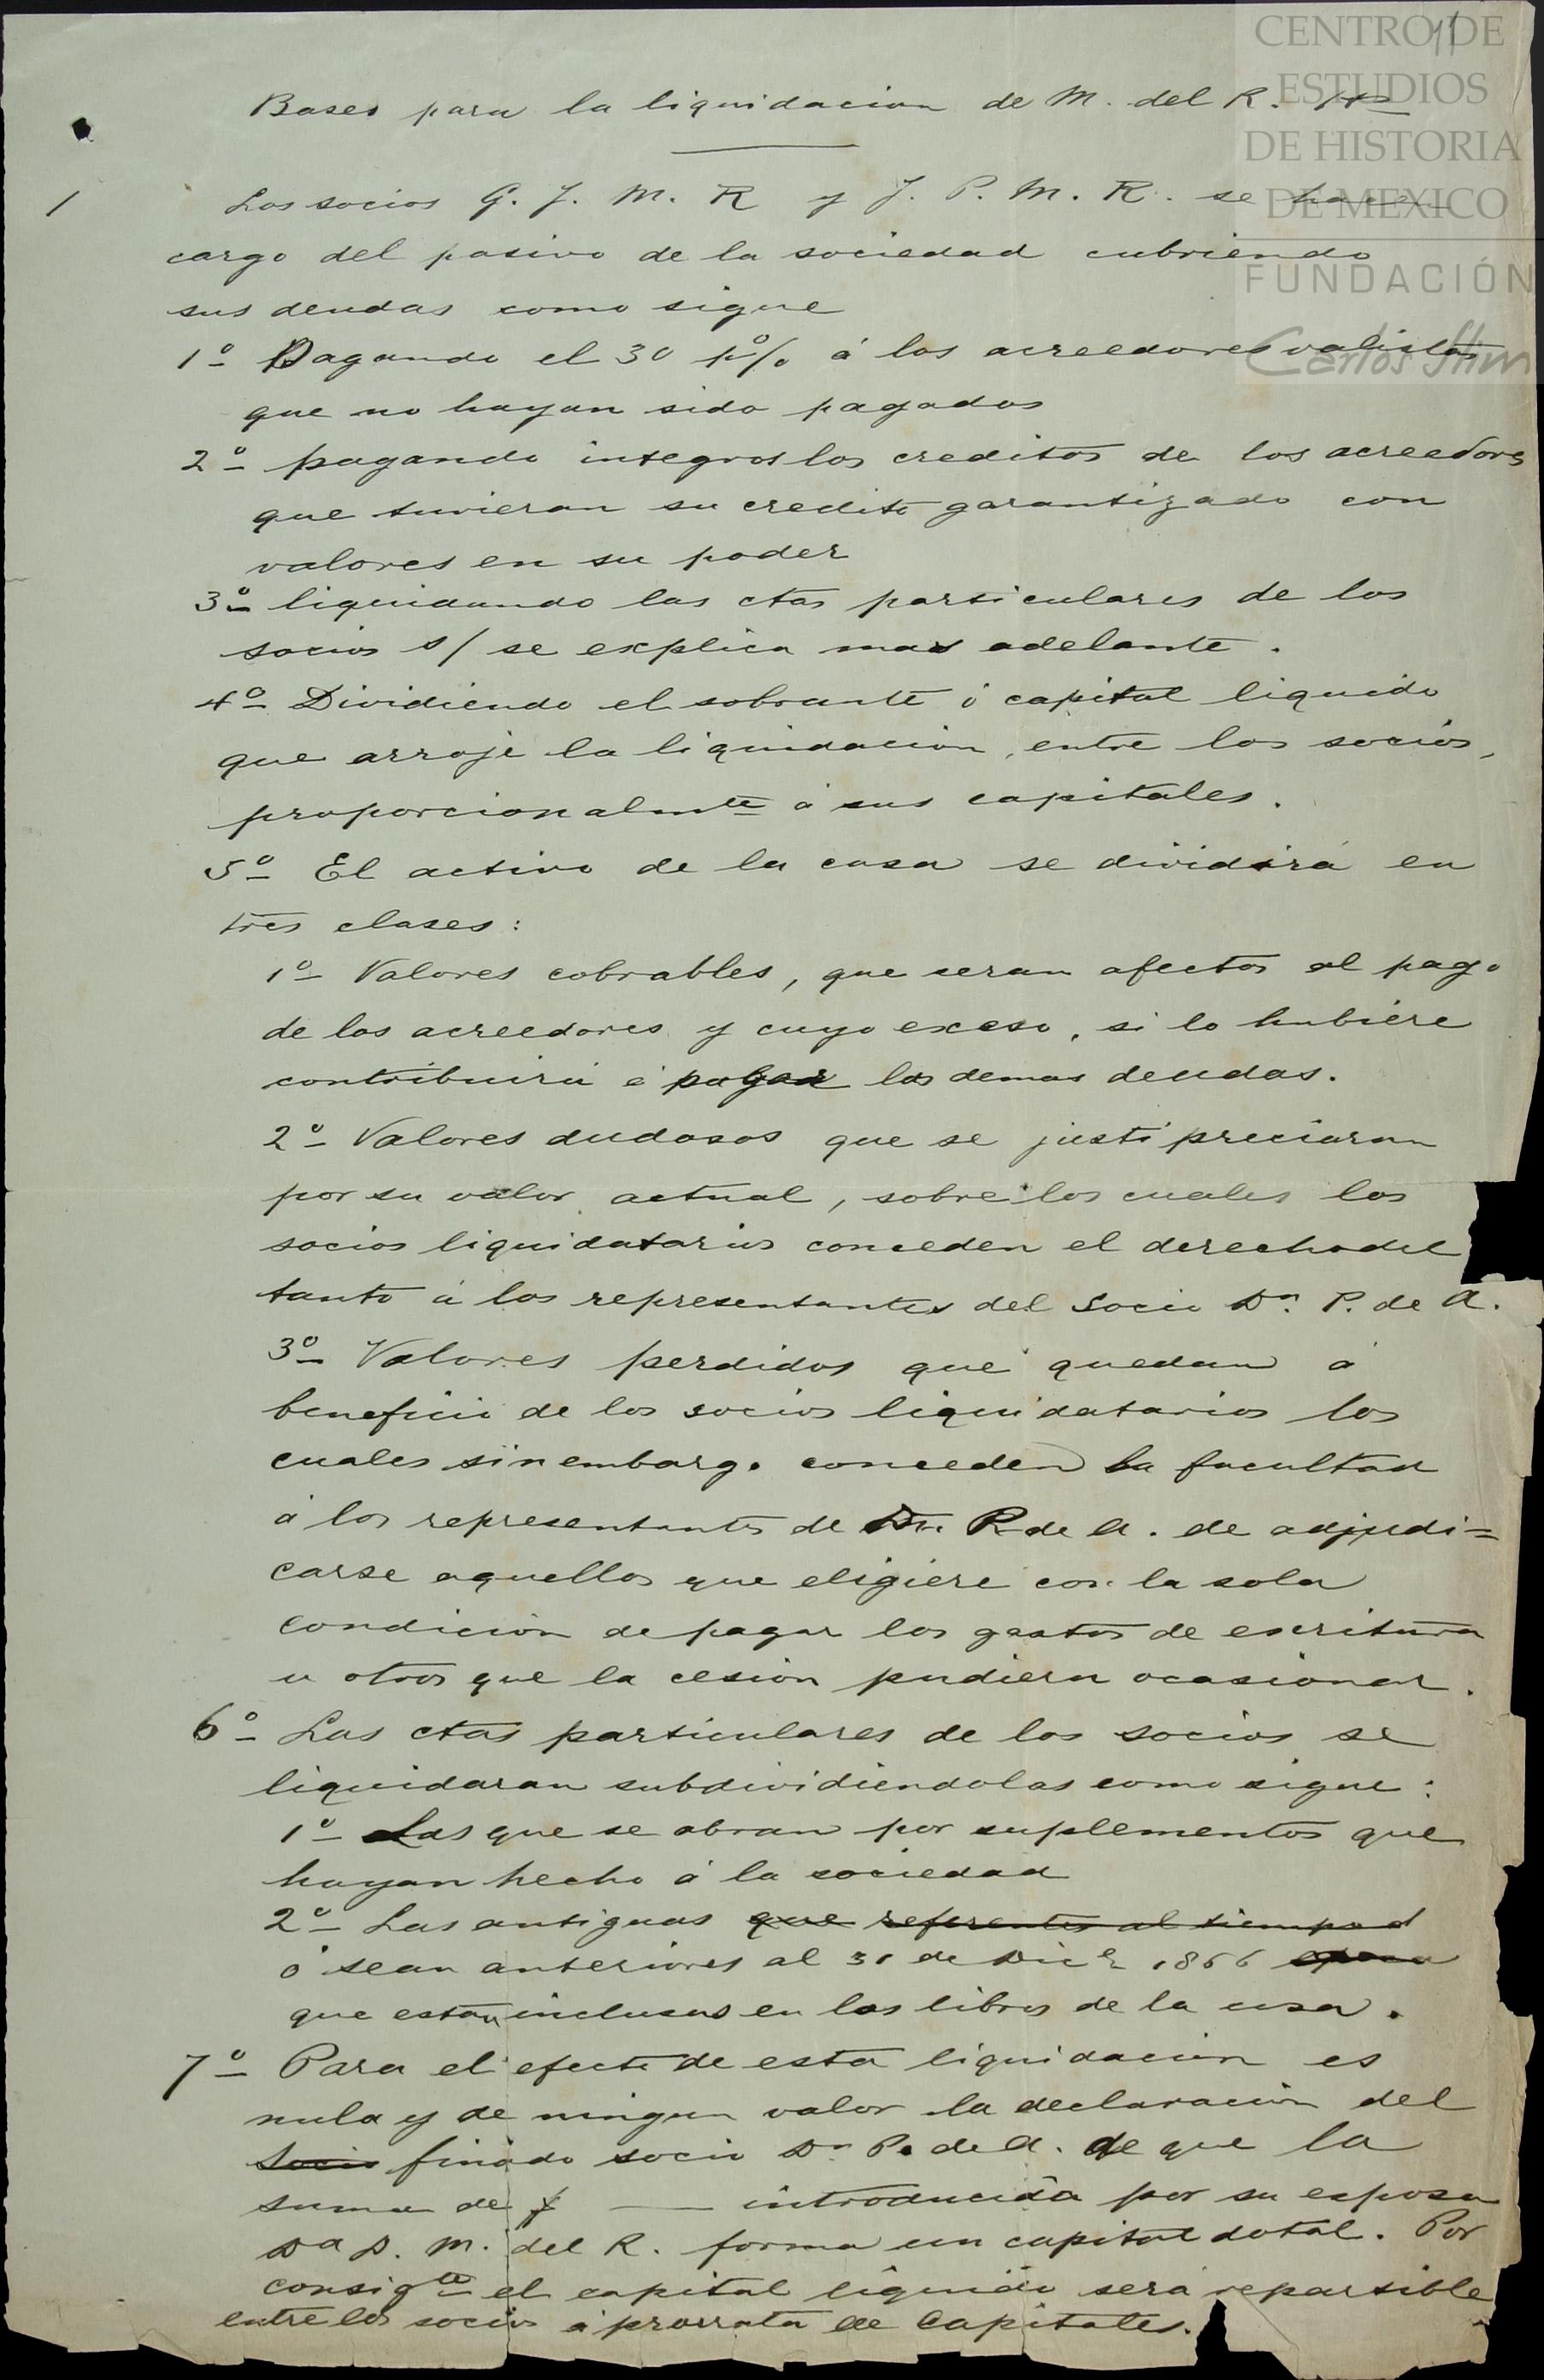 CENTRO DE
ESTUDIOS
DE HISTORIA
DE MEXICO
FUNDACIÓN
Carlos Slim
11
Bases para la liquidacion de M. del R. Hos
1
Los socios G. J. M. R y J. P. M. R. se hacen
cargo del pasivo de la sociedad cubriendo
sus deudas como sigue
1º Pagando el 30 pº/o á los acreedores valistas
que no hayan sido pagados
2º pagando integros los creditos de los acreedores
que tuvieran su credito garantizado con
valores en su poder
3º liquidando las ctas particulares de los
socios s/ se explica mas adelante.
4º Dividiendo el sobrante ó capital liquido
que arroje la liquidacion, entre los socios,
proporcionalmte á sus capitales.
5º El activo de la casa se dividirá en
tres clases:
1º Valores cobrables, que seran afectos al pago
de los acreedores y cuyo exceso, si lo hubiere
contribuirá á pagar las demas deudas.
2º Valores dudosos que se justipreciaran
por su valor actual, sobre los cuales los
socios liquidatarios conceden el derecho del
tanto á los representantes del socio Dn. P. de A.
3º Valores perdidos que quedan á
beneficio de los socios liquidatarios los
cuales sin embargo conceden la facultad
á los representantes de Dn. P. de A. de adjudi=
carse aquellos que eligiere con la sola
condicion de pagar los gastos de escritura
u otros que la cesion pudiera ocasionar.
6º Las ctas particulares de los socios se
liquidaran subdividiendolas como sigue:
1º Las que se abran por suplementos que
hayan hecho á la sociedad
2º Las antiguas que referentes al tiempo d
ó sean anteriores al 31 de Dice 1866 epoca
que estan inclusas en los libros de la casa.
7º Para el efecto de esta liquidacion es
nula y de ningun valor la declaracion del
socio finado socio Dn P. de A. de que la
suma de $ —— introducida por su esposa
Da D. M. del R. forma un capital dotal. Por
consigte el capital liquido será repartible
entre los socios á prorrata de capitales.